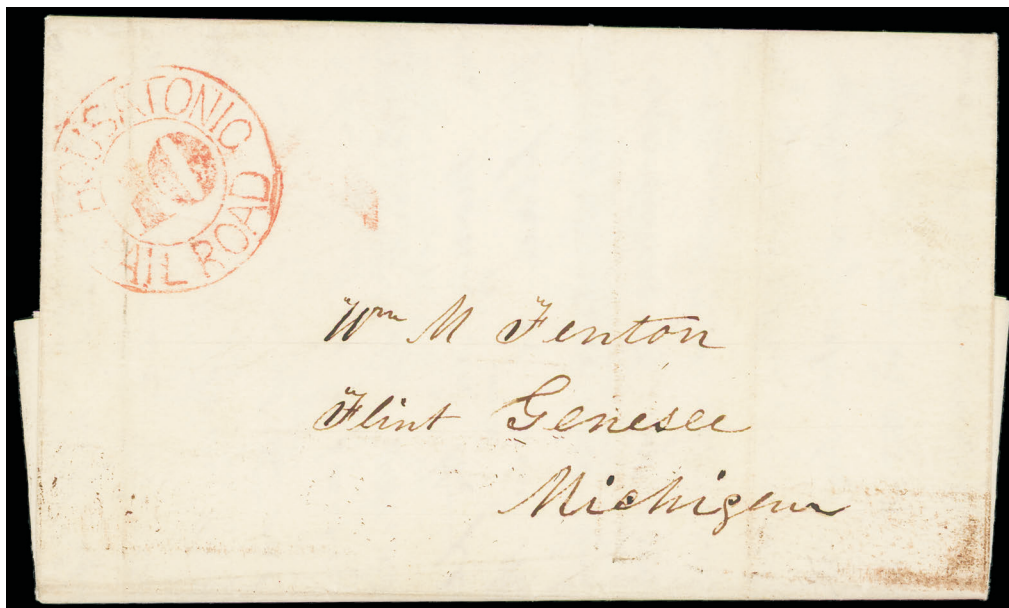 HOUSATONIC
RAIL ROAD
Wm M Fenton
Flint Genesee
Michigan